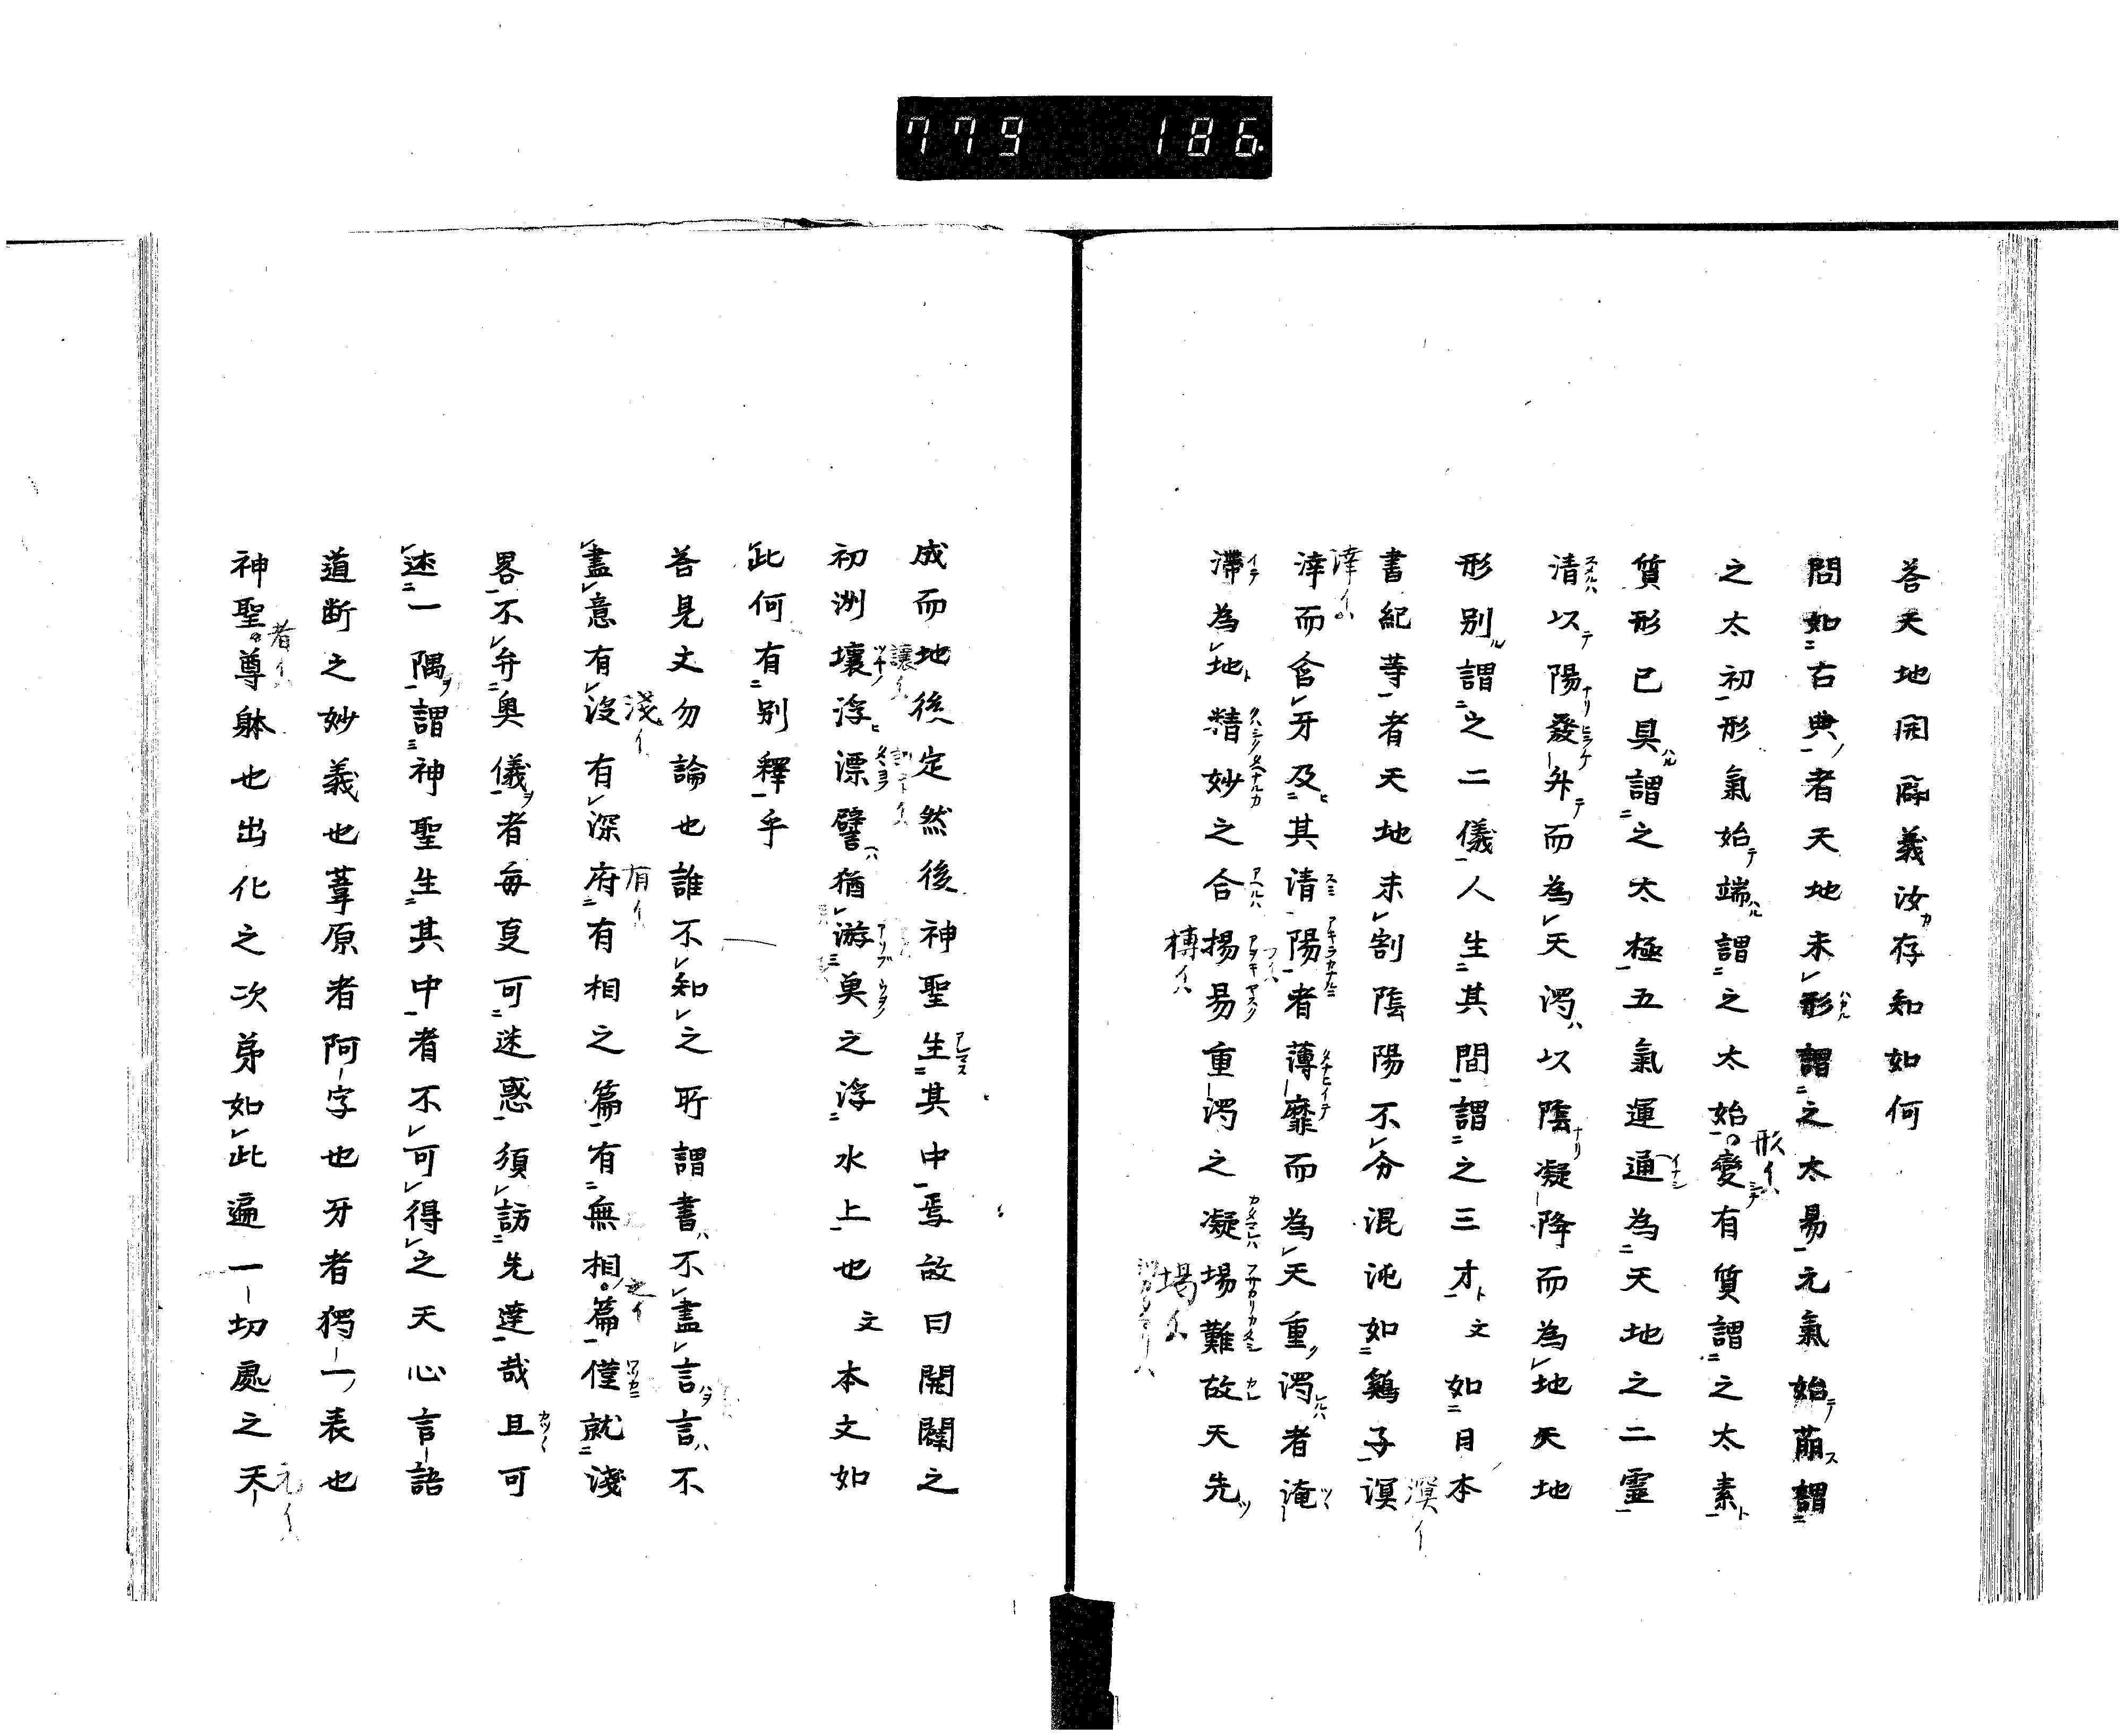 779 186
答天地開闢義汝存知如何
問如右典者天地未形謂之太易元氣始萠謂
之太初形氣始端謂之太始變有質謂之太素
質形已具謂之太極五氣運通為天地之二靈
清以陽發升而為天濁以陰凝降而為地天地
形別謂之二儀人生其間謂之三才文如日本
書紀䓁者天地未割陰陽不分混沌如鷄子溟
涬而含牙及其清陽者薄靡而為天重濁者淹
滯為地精妙之合揚易重濁之凝場難故天先
成而地後定然後神聖生其中焉故曰開闢之
初洲壤浮漂譬猶游魚之浮水上也文本文如
此何有別釋乎
答見文勿論也誰不知之所謂書不盡言言不
盡意有淺有深府有相之篇有無相篇僅就淺
畧不弁奥儀者每㕝可迷惑須訪先達哉且可
述一隅謂神聖生其中者不可得之天心言語
道断之妙義也葦原者阿字也牙者獨一表也
神聖尊躰也出化之次苐如此遍一切處之天